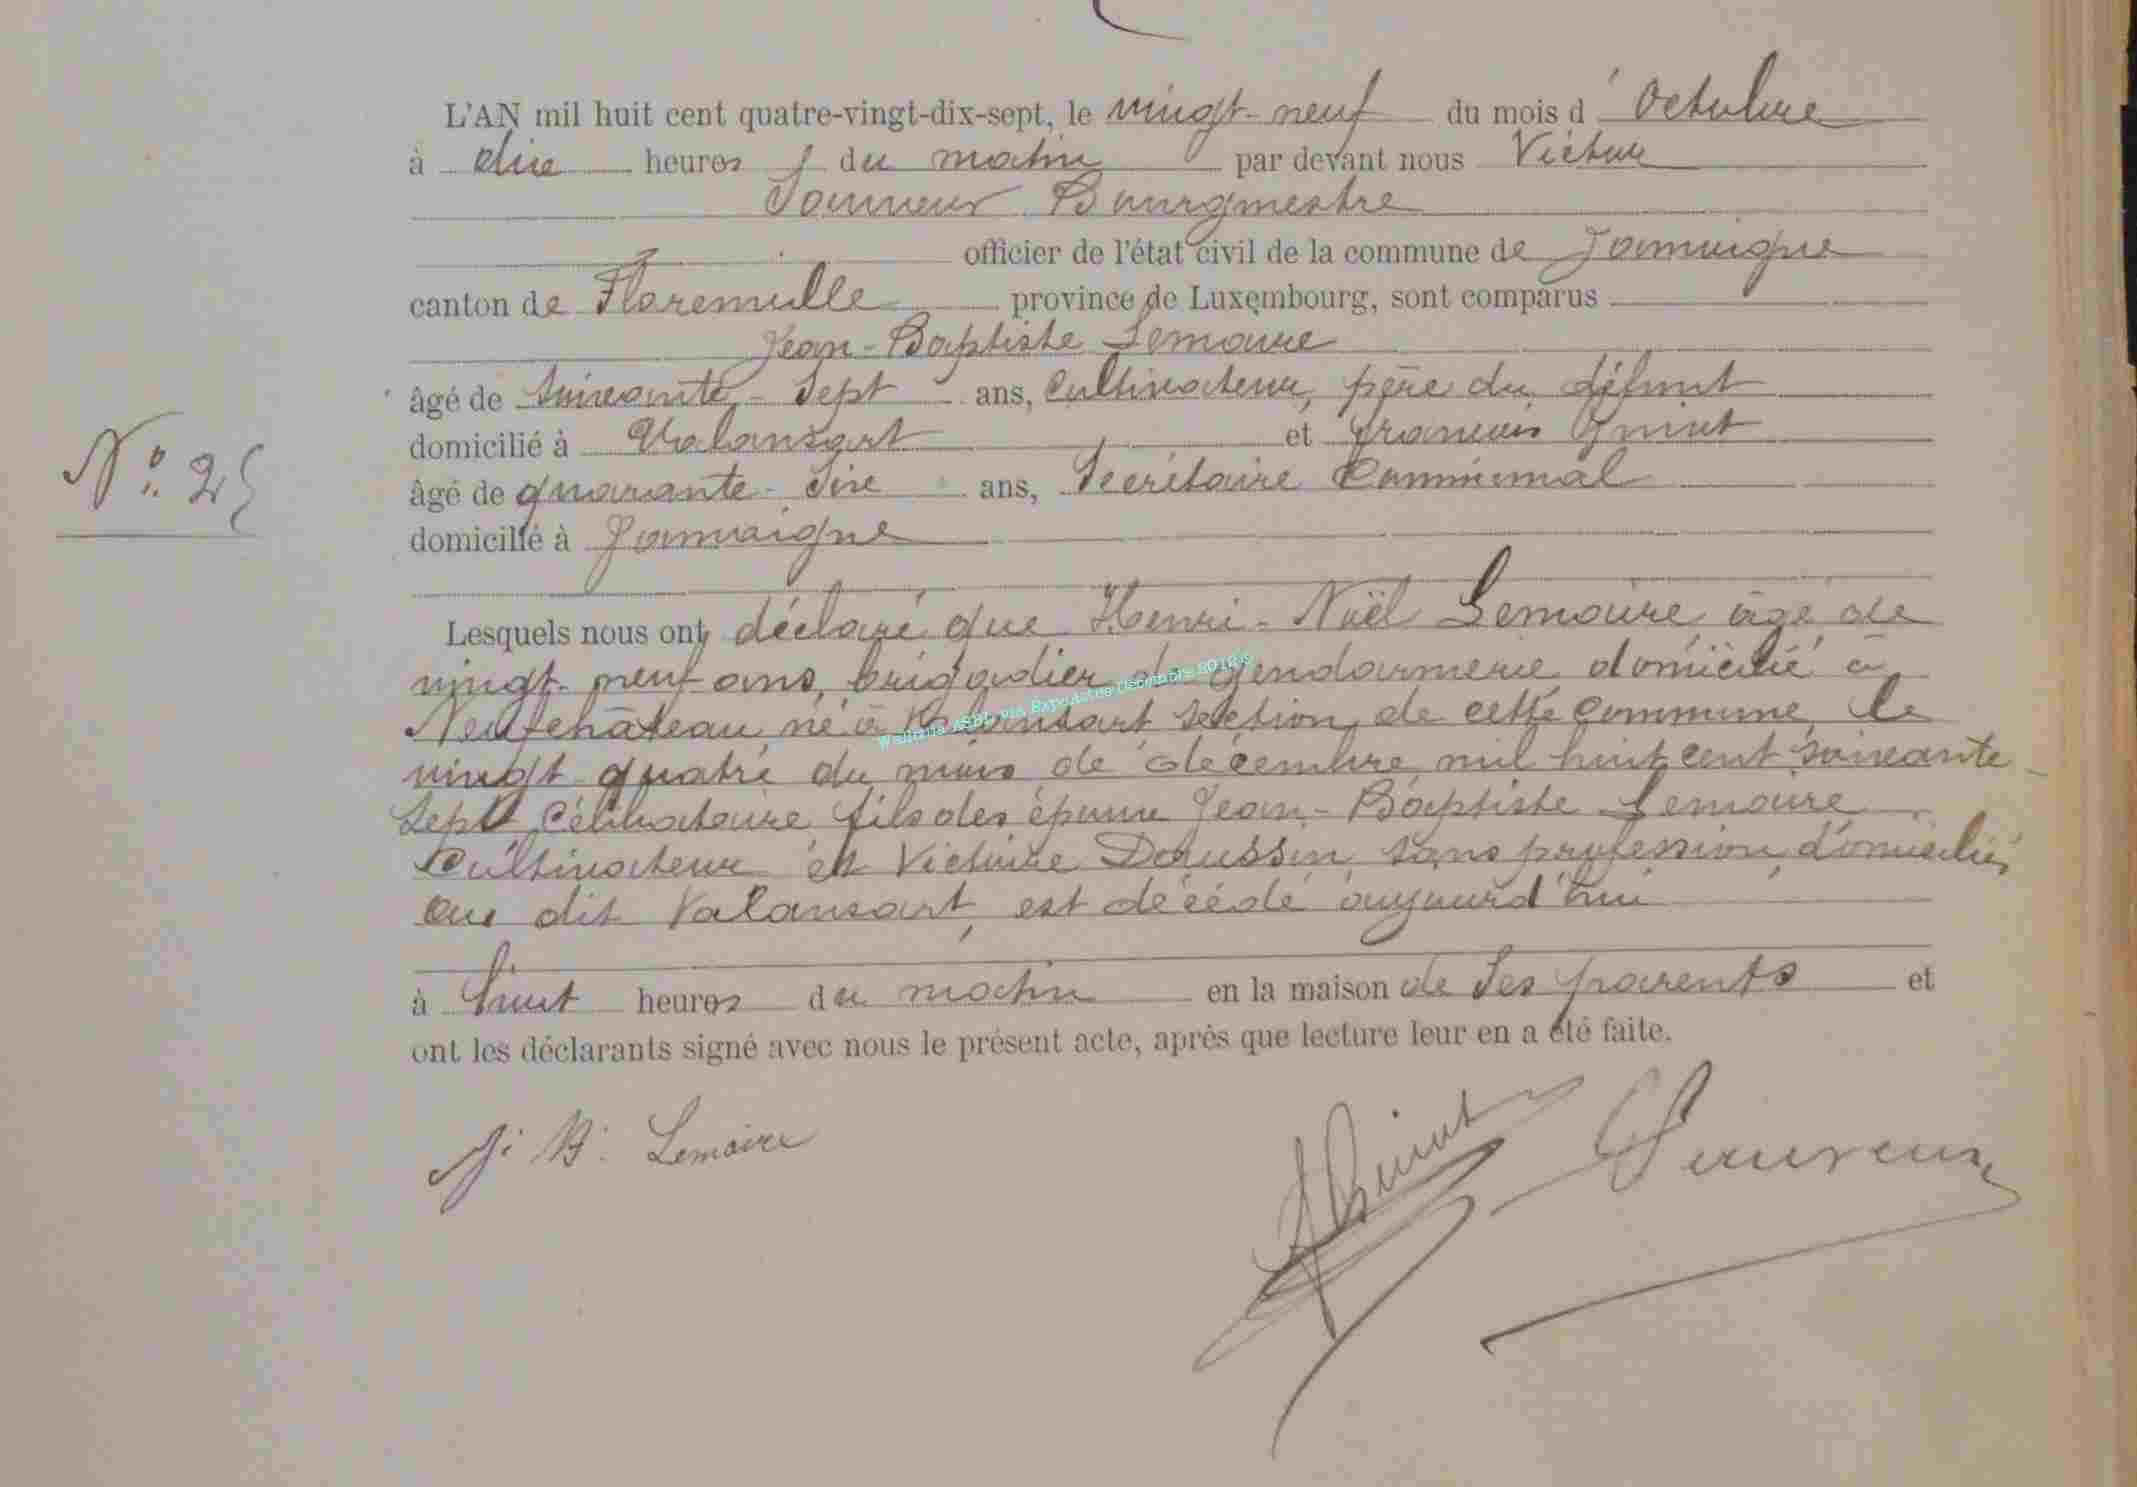 L'AN mil huit cent quatre-vingt-dix-sept, le vingt-neuf du mois d'Octobre
à dix heures du matin par devant nous Victor
Bourgmestre
officier de l'état civil de la commune de Jamoigne
canton de Florenville province de Luxembourg, sont comparus
Jean-Baptiste Lemaire
âgé de soixante-sept ans, Cultivateur, père du défunt
domicilié à Valansart et François
âgé de quarante-six ans, Secrétaire Communal
domicilié à Jamoigne
N° 25
Lesquels nous ont déclaré que Henri-Noël Lemaire âgé de
vingt-neuf ans, brigadier de gendarmerie domicilié à
Neufchâteau né à Valansart section de cette commune, le
vingt-quatre du mois de décembre mil huit cent soixante-
sept Célibataire fils des époux Jean-Baptiste Lemaire
Cultivateur et Victoire sans profession, domiciliés
au dit Valansart, est décédé aujourd'hui
à huit heures du matin en la maison de ses parents et
ont les déclarants signé avec nous le présent acte, après que lecture leur en a été faite.
J. B. Lemaire